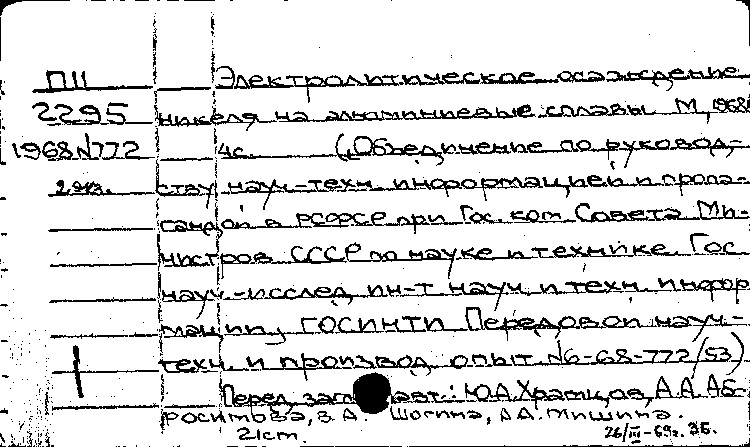 П11 Электролитическое осаждение
2295 никеля на алюминиевые сплавы М, 1968
1968N772 4с. („Объединение по руковод-
2 экз. ству науч-техн. информацией и пропа-
гандой в РСФСР при Гос. ком. Совета Ми-
нистров СССР по науке и технике Гос
науч.-исслед ин-т науч. и техн. инфор
мации, ГОСИНТИ Передовой науч.-
техн. и производ. опыт. N6-68-772/53)
Перед. авт.: Ю.А. Храмцов, А.А. Аб-
росимова, В.А. Шогина, А.А. Мишина.
21см. 26/III-69г. ЗБ.